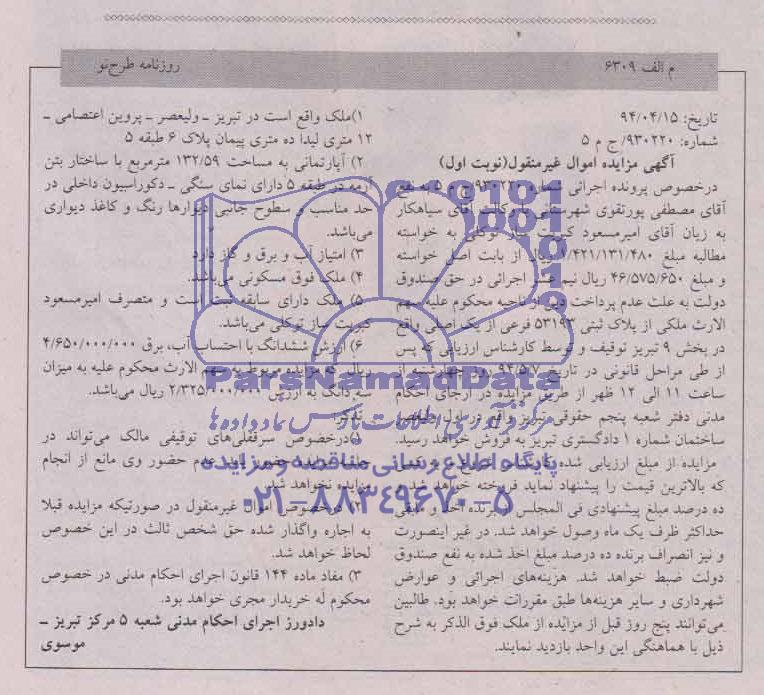 م الف ۶۳۰۹
روزنامه طرح‌نو
تاریخ: ۹۴/۰۴/۱۵
شماره: ۹۳۰۲۲۰/ ج م ۵
آگهی مزایده اموال غیرمنقول(نوبت اول)
درخصوص پرونده اجرائی شماره ۹۳۰۲۲۰ ج م ۵ به نفع
آقای مصطفی پورتقوی شهرستانی با وکالت آقای سیاهکار
به زیان آقای امیرمسعود کبریت ساز توکلی به خواسته
مطالبه مبلغ ۱/۴۲۱/۱۳۱/۴۸۰ ریال از بابت اصل خواسته
و مبلغ ۴۶/۵۷۵/۶۵۰ ریال نیم عشر اجرائی در حق صندوق
دولت به علت عدم پرداخت دین از ناحیه محکوم علیه سهم
الارث ملکی از پلاک ثبتی ۵۳۱۹۳ فرعی از یک اصلی واقع
در بخش ۹ تبریز توقیف و توسط کارشناس ارزیابی که پس
از طی مراحل قانونی در تاریخ ۹۴/۵/۷ روز چهارشنبه از
ساعت ۱۱ الی ۱۲ ظهر از طریق مزایده در اجرای احکام
مدنی دفتر شعبه پنجم حقوقی تبریز واقع در
ساختمان شماره ۱ دادگستری تبریز به فروش خواهد رسید.
مزایده از مبلغ ارزیابی شده
که بالاترین قیمت را پیشنهاد نماید فروخته خواهد شد
ده درصد مبلغ پیشنهادی فی المجلس از برنده اخذ و مابقی
حداکثر ظرف یک ماه وصول خواهد شد. در غیر اینصورت
و نیز انصراف برنده ده درصد مبلغ اخذ شده به نفع صندوق
دولت ضبط خواهد شد. هزینه‌های اجرائی و عوارض
شهرداری و سایر هزینه‌ها طبق مقررات خواهد بود. طالبین
می‌توانند پنج روز قبل از مزایده از ملک فوق الذکر به شرح
ذیل با هماهنگی این واحد بازدید نمایند.
۱)ملک واقع است در تبریز ـ ولیعصر ـ پروین اعتصامی ـ
۱۲ متری لیدا ده متری پیمان پلاک ۶ طبقه ۵
۲) آپارتمانی به مساحت ۱۳۲/۵۹ مترمربع با ساختار بتن
آرمه در طبقه ۵ دارای نمای سنگی ـ دکوراسیون داخلی در
حد مناسب و سطوح جانبی دیوارها رنگ و کاغذ دیواری
می‌باشد.
۳) امتیاز آب و برق و گاز دارد
۴) ملک فوق مسکونی می‌باشد.
۵) ملک دارای سابقه ثبتی است و متصرف امیرمسعود
کبریت ساز توکلی می‌باشد.
۶) ارزش ششدانگ با احتساب آب، برق ۴/۶۵۰/۰۰۰/۰۰۰
ریال که مزایده مربوط به سهم الارث محکوم علیه به میزان
سه دانگ به ارزش ۲/۳۲۵/۰۰۰/۰۰۰ ریال می‌باشد.
تذکر
۱)درخصوص سرقفلی‌های توقیفی مالک می‌تواند در
جلسه مزایده حضور یابد عدم حضور وی مانع از انجام
مزایده نخواهد شد.
۲) درخصوص اموال غیرمنقول در صورتیکه مزایده قبلا
به اجاره واگذار شده حق شخص ثالث در این خصوص
لحاظ خواهد شد.
۳) مفاد ماده ۱۴۴ قانون اجرای احکام مدنی در خصوص
محکوم له خریدار مجری خواهد بود.
دادورز اجرای احکام مدنی شعبه ۵ مرکز تبریز ـ
موسوی
ParsNamadData
مرکز فرآوری اطلاعات پارس نماد داده‌ها
پایگاه اطلاع رسانی مناقصه و مزایده
۰۲۱-۸۸۳۴۹۶۷۰-۵